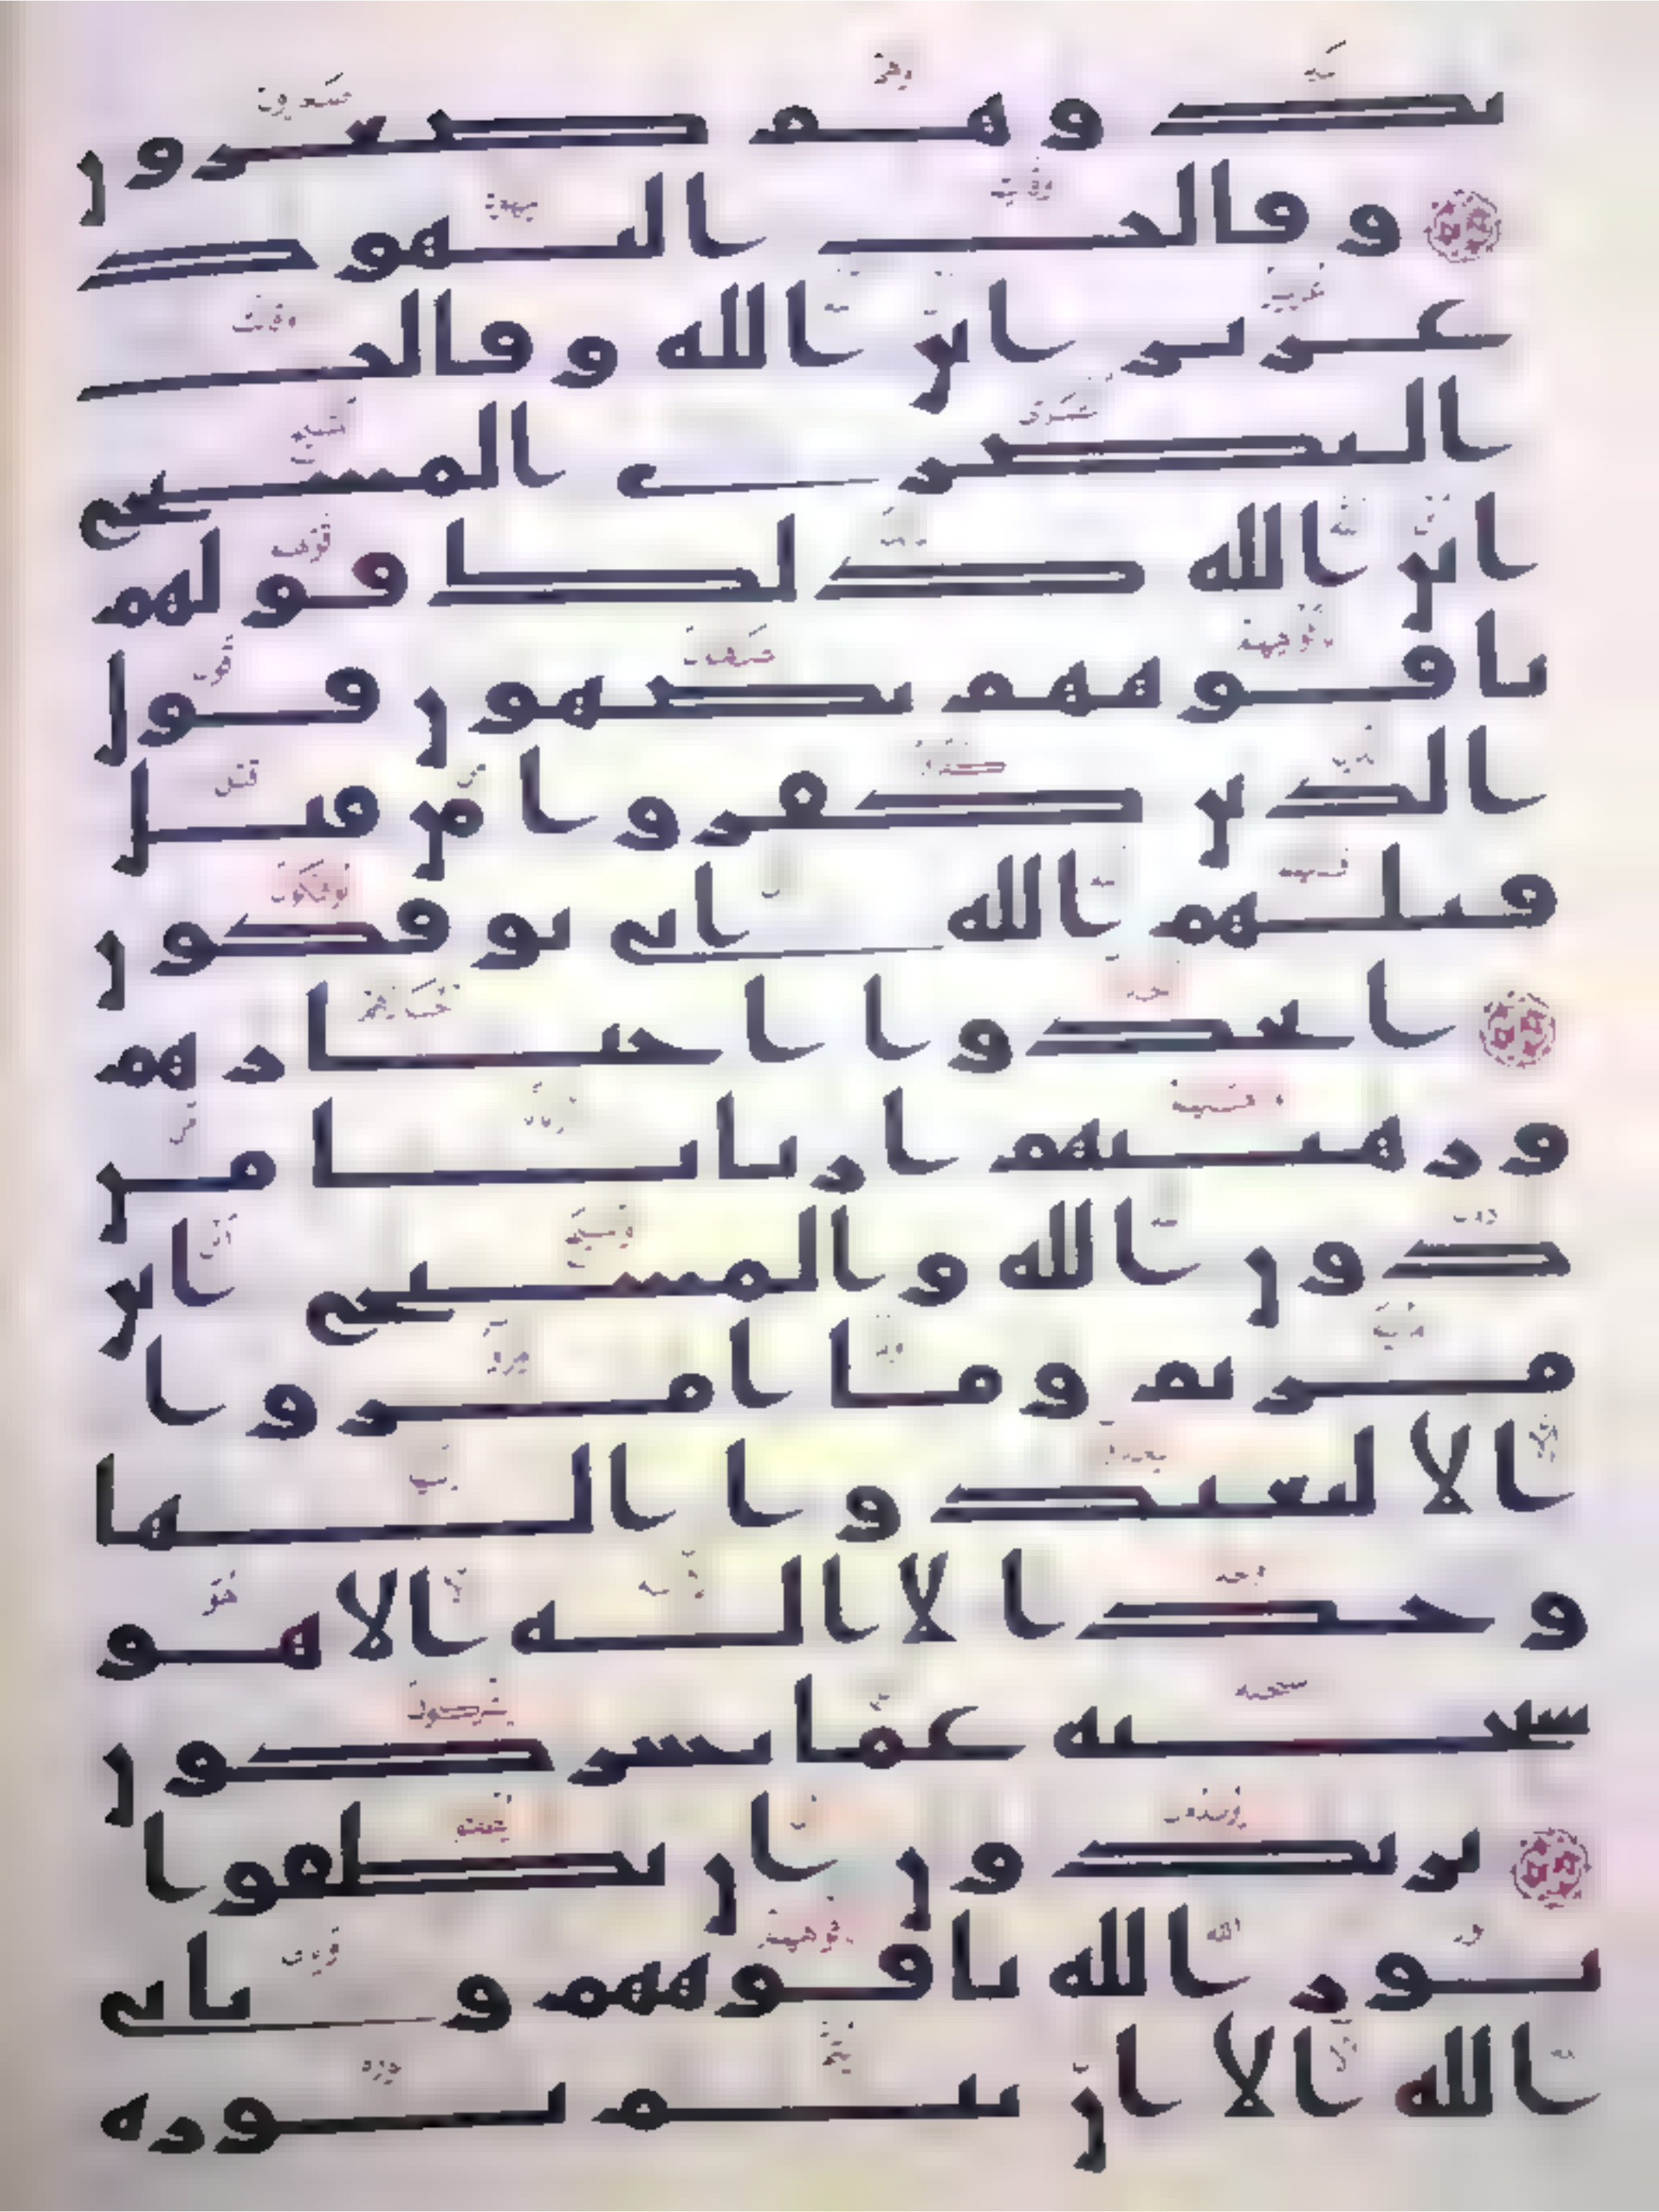 يد وهم صغرون
وقالت اليهود
عزير ابن الله وقالت
النصرى المسيح
ابن الله ذلك قولهم
بافوههم يضهون قول
الذين كفروا من قبل
قتلهم الله انى يوفكون
اتخذوا احبارهم
ورهبنهم اربابا من
دون الله والمسيح ابن
مريم وما امروا
الا ليعبدوا الها
وحدا لا اله الا هو
سبحنه عما يشركون
يريدون ان يطفوا
نور الله بافوههم ويابى
الله الا ان يتم نوره